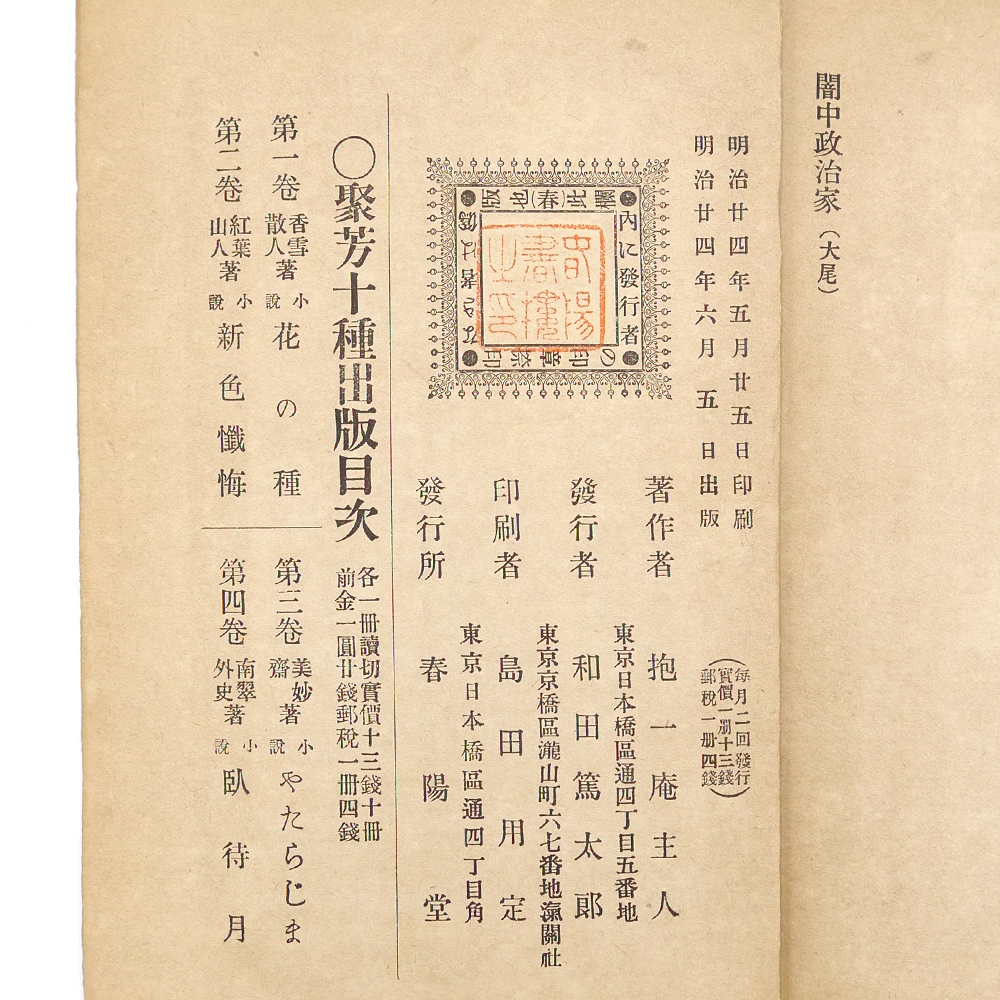 闇中政治家（大尾）
明治廿四年五月廿五日印刷
明治廿四年六月五日出版
（每月二回發行
實價一册十三錢
郵税一册四錢）
內に發行者
の印章
春陽
書樓
之印
著作者 抱一庵主人
東京日本橋區通四丁目五番地
發行者 和田篤太郎
東京京橋區瀧山町六七番地瀛關社
印刷者 島田用定
東京日本橋區通四丁目角
發行所 春陽堂
〇聚芳十種出版目次
各一冊讀切實價十三錢十冊
前金一圓廿錢郵税一冊四錢
第一卷 香雪散人著 小說 花の種
第二卷 紅葉山人著 小說 新色懺悔
第三卷 美妙齋著 小說 やたらじま
第四卷 南翠外史著 小說 臥待月